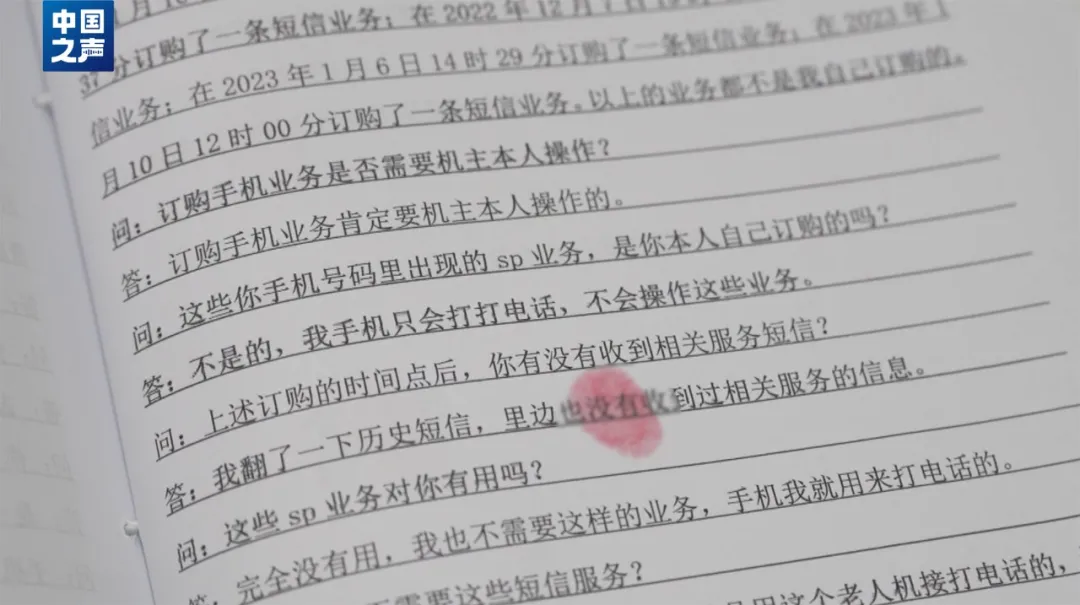 中国之声
月
在 2022 年 12 月 7 日
37 分订购了一条短信业务;
信业务;在 2023 年 1 月 6 日 14 时 29 分订购了一条短信业务;在 2023 年 1
月 10 日 12 时 00 分订购了一条短信业务。以上的业务都不是我自己订购的。
问:订购手机业务是否需要机主本人操作?
答:订购手机业务肯定要机主本人操作的。
问:这些你手机号码里出现的 sp 业务,是你本人自己订购的吗?
答:不是的,我手机只会打打电话,不会操作这些业务。
问:上述订购的时间点后,你有没有收到相关服务短信?
答:我翻了一下历史短信,里边也没有收到过相关服务的信息。
问:这些 sp 业务对你有用吗?
答:完全没有用,我也不需要这样的业务,手机我就用来打电话的。
需要这些短信服务?
用这个老人机接打电话的,